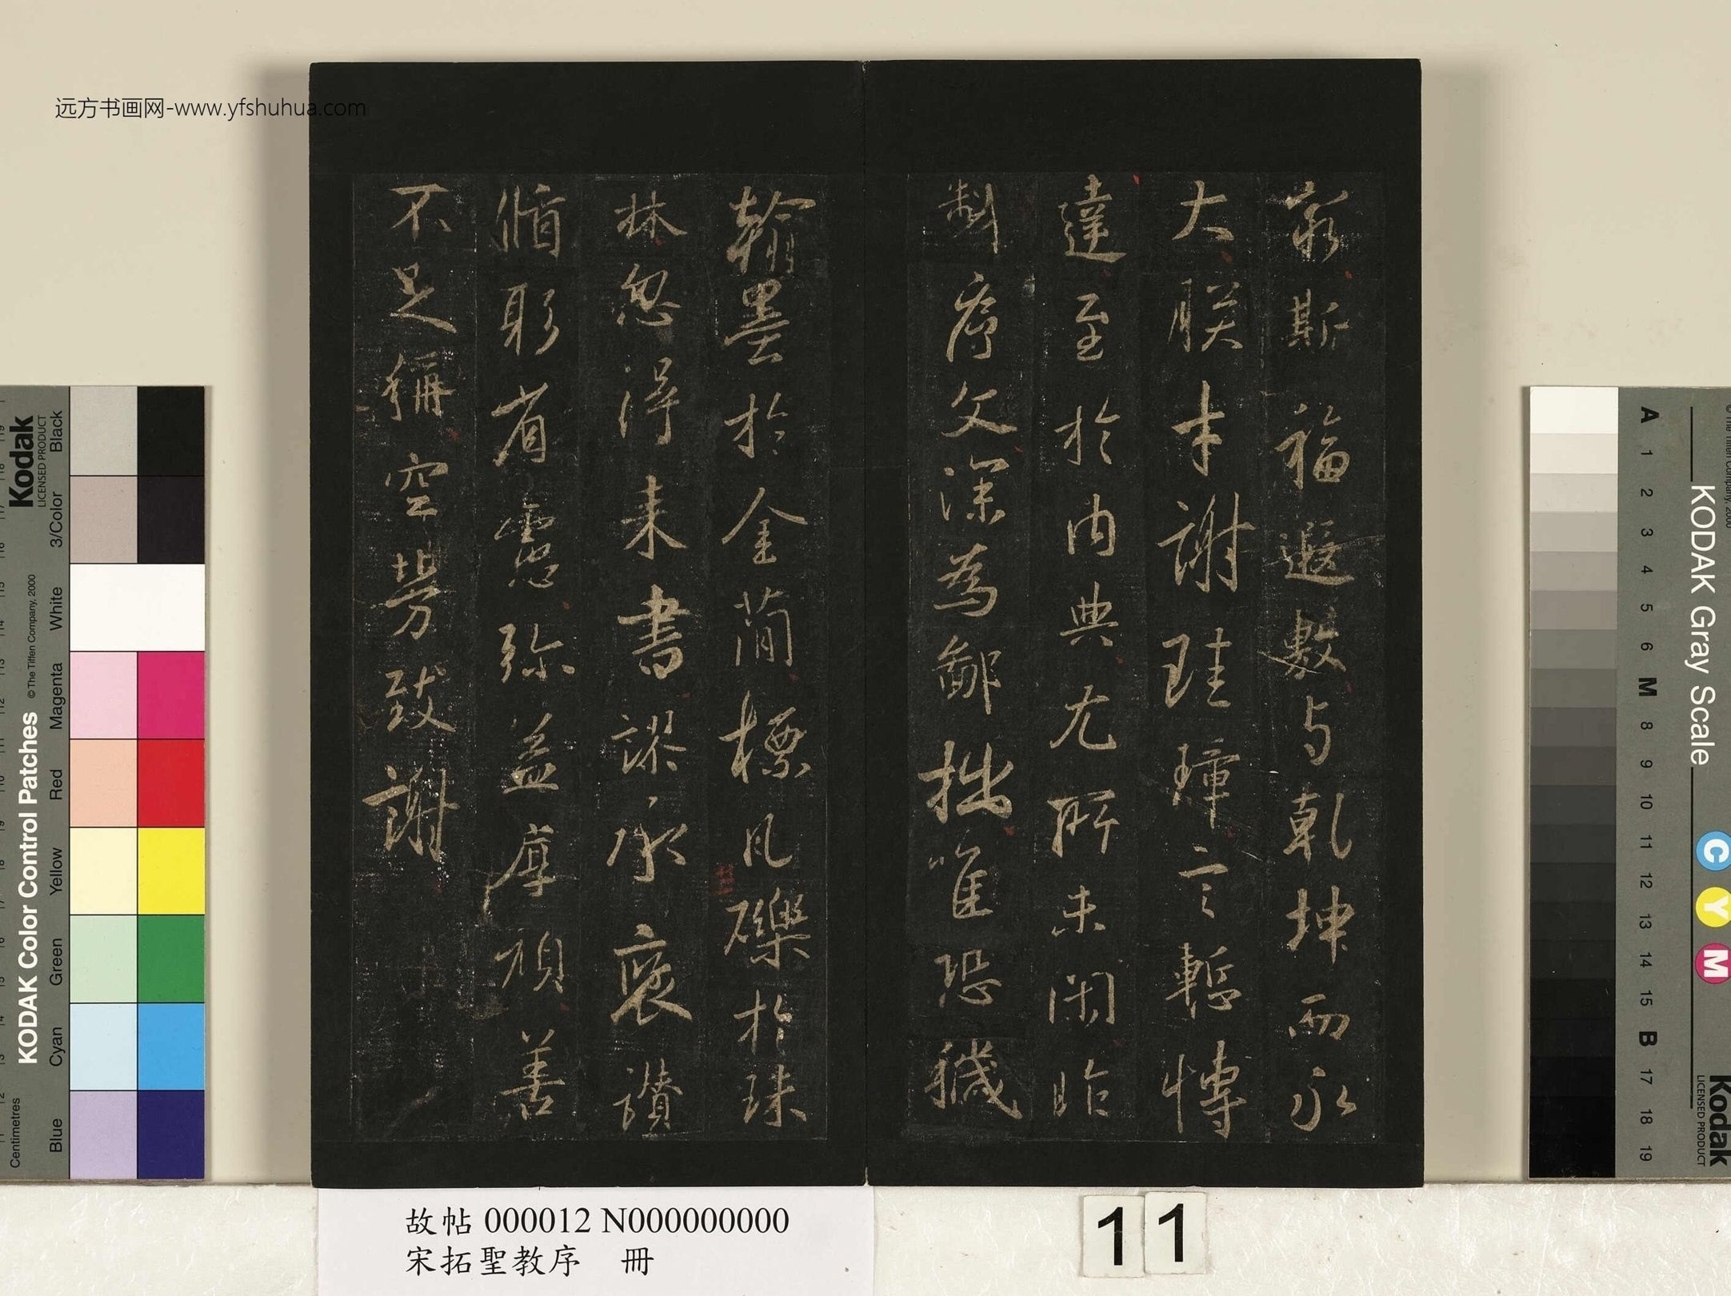 远方书画网-www.yfshuhua.com
窮斯福遐敷与乾坤而永
大朕才謝珪璋言慙博
達至於內典尤所未閑昨
制序文深為鄙拙唯恐穢
翰墨於金簡標瓦礫於珠
林忽得来書謬承褒讚
循躬省慮弥益厚顏善
不足稱空勞致謝
故帖 000012 N000000000
宋拓聖教序 冊
11
Kodak
LICENSED PRODUCT
KODAK Color Control Patches
© The Tiffen Company, 2000
Centimetres
Black
3/Color
White
Magenta
Red
Yellow
Green
Cyan
Blue
KODAK Gray Scale
C
Y
M
Kodak
LICENSED PRODUCT
A
1
2
3
4
5
6
M
8
9
10
11
12
13
14
15
B
17
18
19